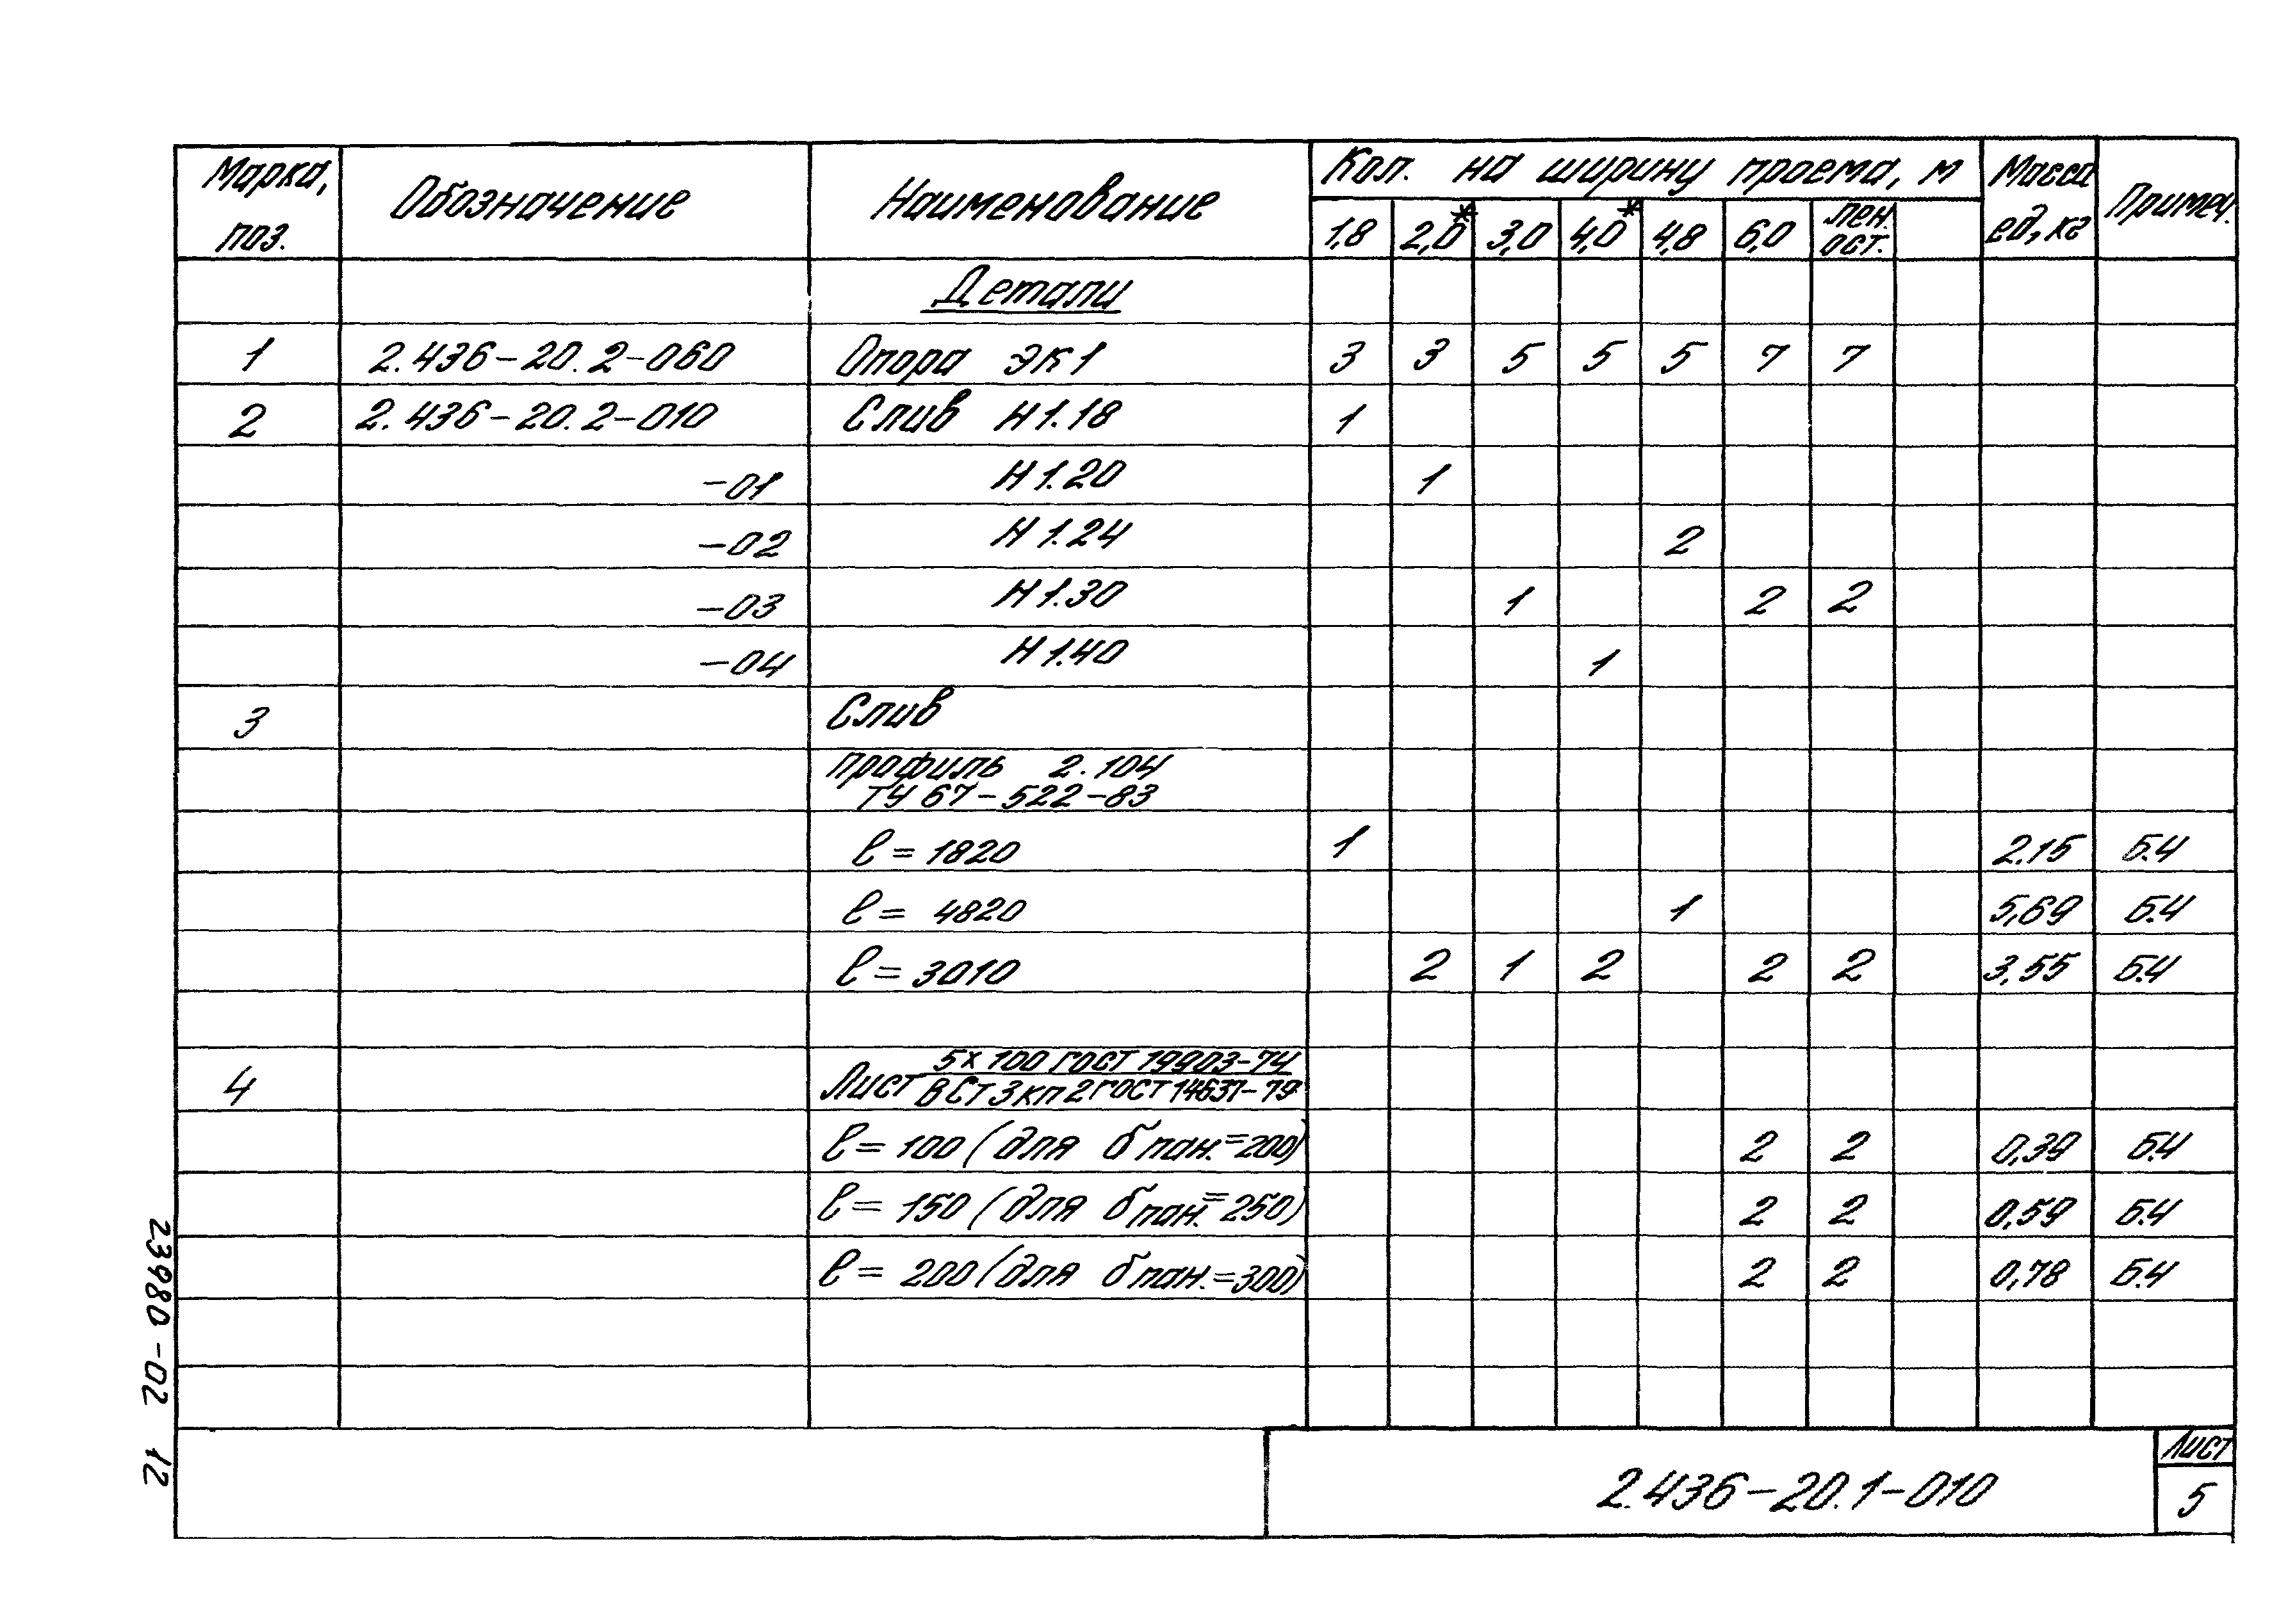 Марка, поз. Обозначение Наименование Кол. на ширину проема, м Масса ед, кг Примеч.
1,8 2,0* 3,0 4,0* 4,8 6,0 лен. ост.
Детали
1 2.436-20.2-060 Опора ЭК1 3 3 5 5 5 7 7
2 2.436-20.2-010 Слив Н1.18 1
-01 Н1.20 1
-02 Н1.24 2
-03 Н1.30 1 2 2
-04 Н1.40 1
3 Слив
профиль 2.104
ТУ 67-522-83
ℓ = 1820 1 2.15 Б.Ч
ℓ = 4820 1 5,69 Б.Ч
ℓ = 3010 2 1 2 2 2 3,55 Б.Ч
4 Лист 5х100 ГОСТ 19903-74
ВСТ3кп2 ГОСТ 14637-79
ℓ = 100 (для б пан. = 200) 2 2 0,39 Б.Ч
ℓ = 150 (для б пан. = 250) 2 2 0,59 Б.Ч
ℓ = 200 (для б пан. = 300) 2 2 0,78 Б.Ч
2.436-20.1-010
Лист
5
23980-02 12